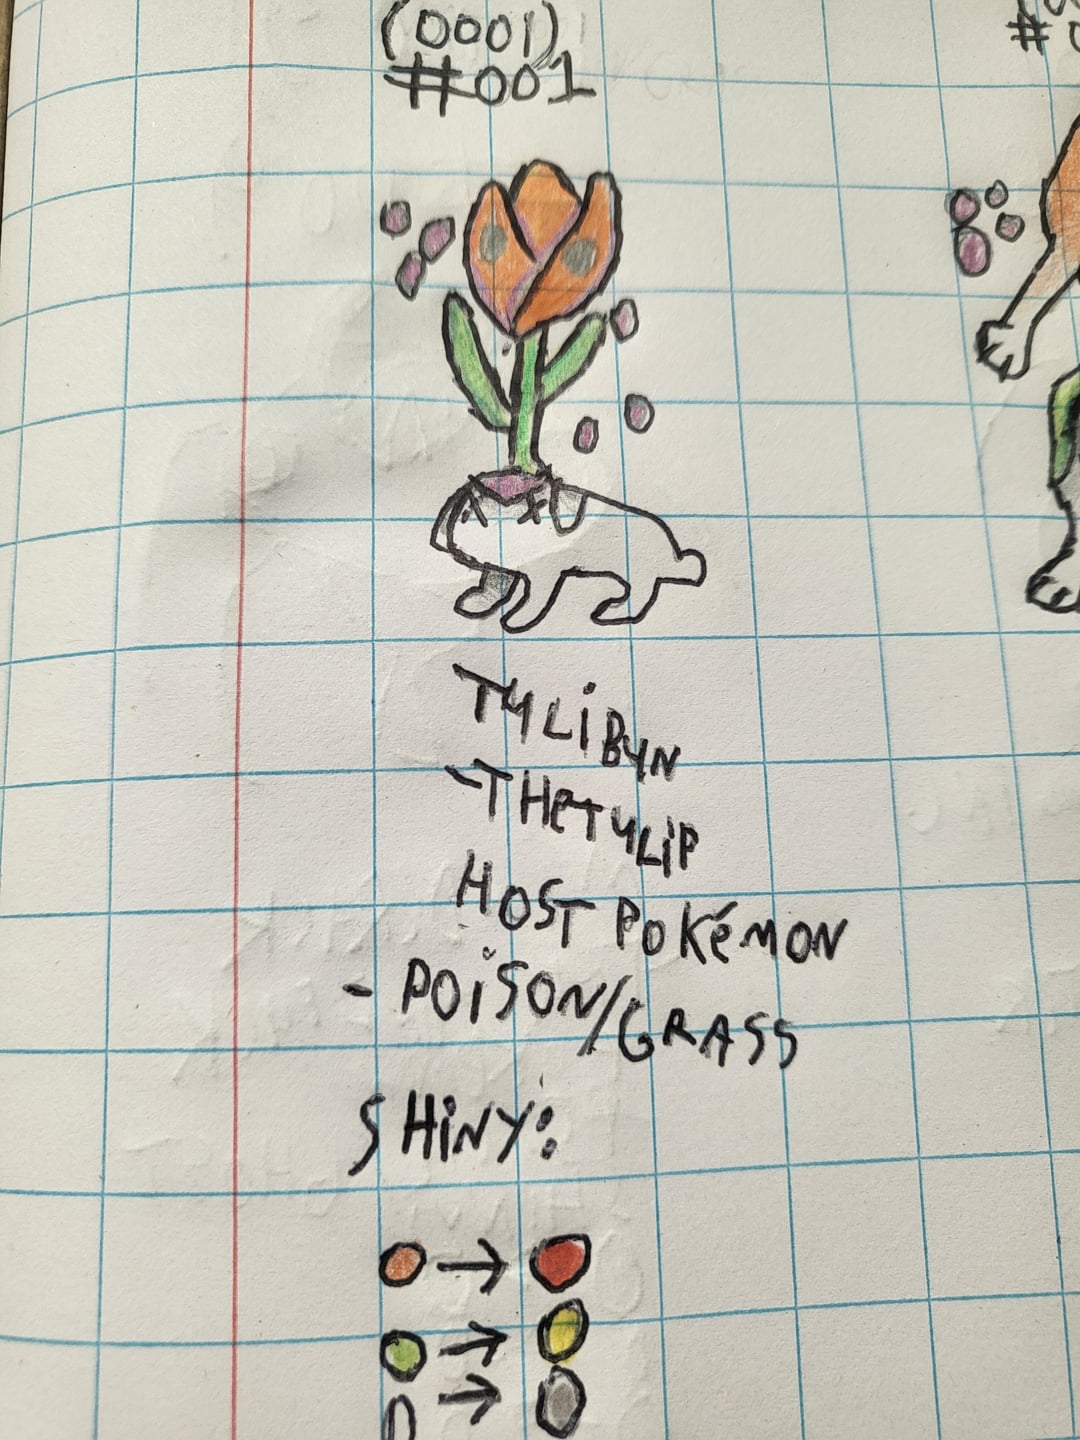 (0001)
#001
TYLiBYN
-THeTYLiP
HOST POKéMON
- POiSON/GRASS
SHiNY: